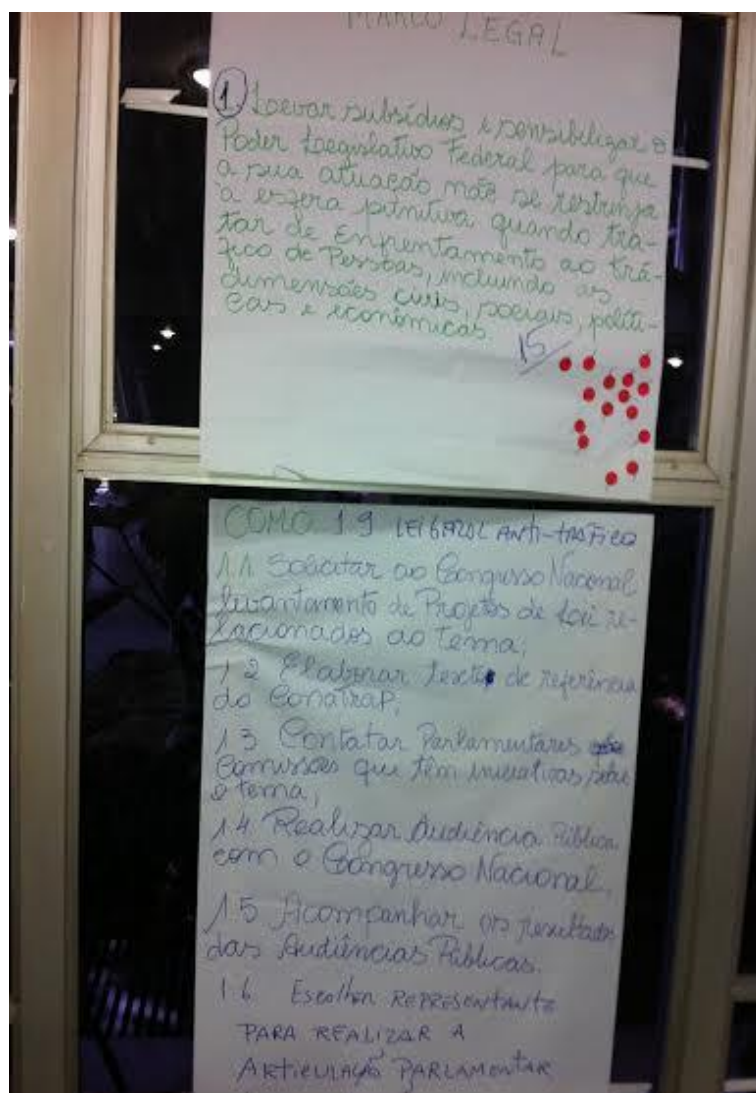 MARCO LEGAL
1 Levar subsídios e sensibilizar o
Poder Legislativo Federal para que
a sua atuação não se restrinja
à esfera punitiva quando tra-
tar de Enfrentamento ao trá-
fico de Pessoas, incluindo as
dimensões civis, sociais, políti-
cas e econômicas.
15
COMO 1.9 LEI GERAL ANTI-TRÁFICO
1.1 Solicitar ao Congresso Nacional
levantamento de Projetos de Lei re-
lacionados ao tema;
1.2 Elaborar texto de referência
do Conatrap;
1.3 Contatar Parlamentares
Comissões que têm iniciativas sobre
o tema;
1.4 Realizar Audiência Pública
com o Congresso Nacional;
1.5 Acompanhar os resultados
das Audiências Públicas.
1.6 Escolher REPRESENTANTE
PARA REALIZAR A
ARTICULAÇÃO PARLAMENTAR